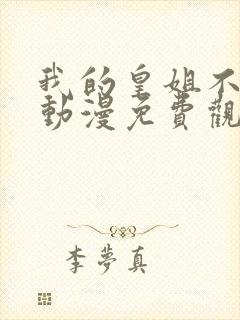 我的皇姐不
動漫免費觀
李夢真